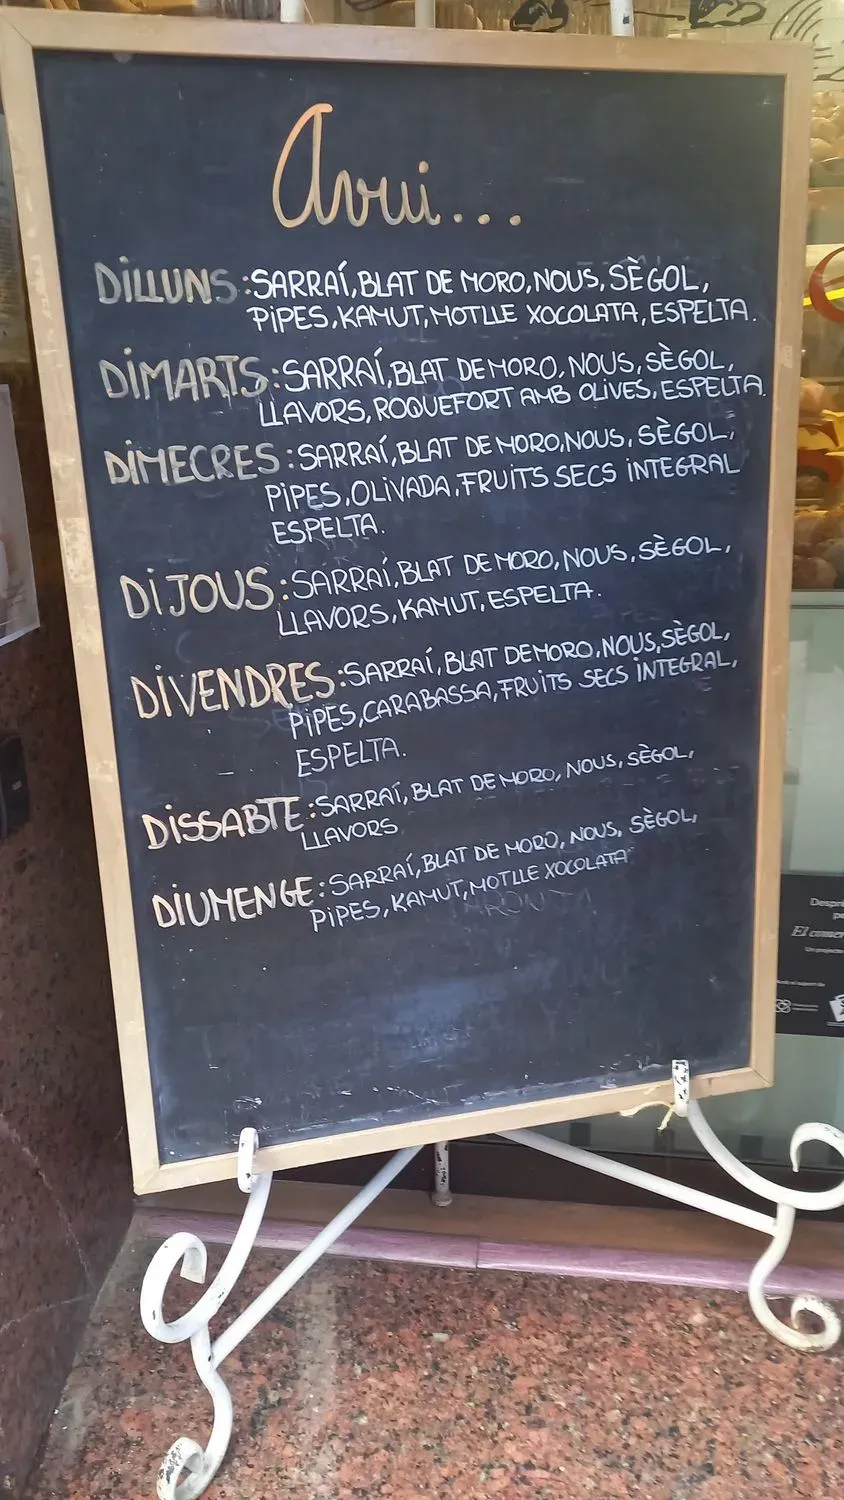 Avui...
DILLUNS: SARRAÍ, BLAT DE MORO, NOUS, SÈGOL,
PIPES, KAMUT, MOTLLE XOCOLATA, ESPELTA.
DIMARTS: SARRAÍ, BLAT DE MORO, NOUS, SÈGOL,
LLAVORS, ROQUEFORT AMB OLIVES, ESPELTA.
DIMECRES: SARRAÍ, BLAT DE MORO, NOUS, SÈGOL,
PIPES, OLIVADA, FRUITS SECS INTEGRAL
ESPELTA.
DIJOUS: SARRAÍ, BLAT DE MORO, NOUS, SÈGOL,
LLAVORS, KAMUT, ESPELTA.
DIVENDRES: SARRAÍ, BLAT DE MORO, NOUS, SÈGOL,
PIPES, CARABASSA, FRUITS SECS INTEGRAL,
ESPELTA.
DISSABTE: SARRAÍ, BLAT DE MORO, NOUS, SÈGOL,
LLAVORS
DIUMENGE: SARRAÍ, BLAT DE MORO, NOUS, SÈGOL,
PIPES, KAMUT, MOTLLE XOCOLATA